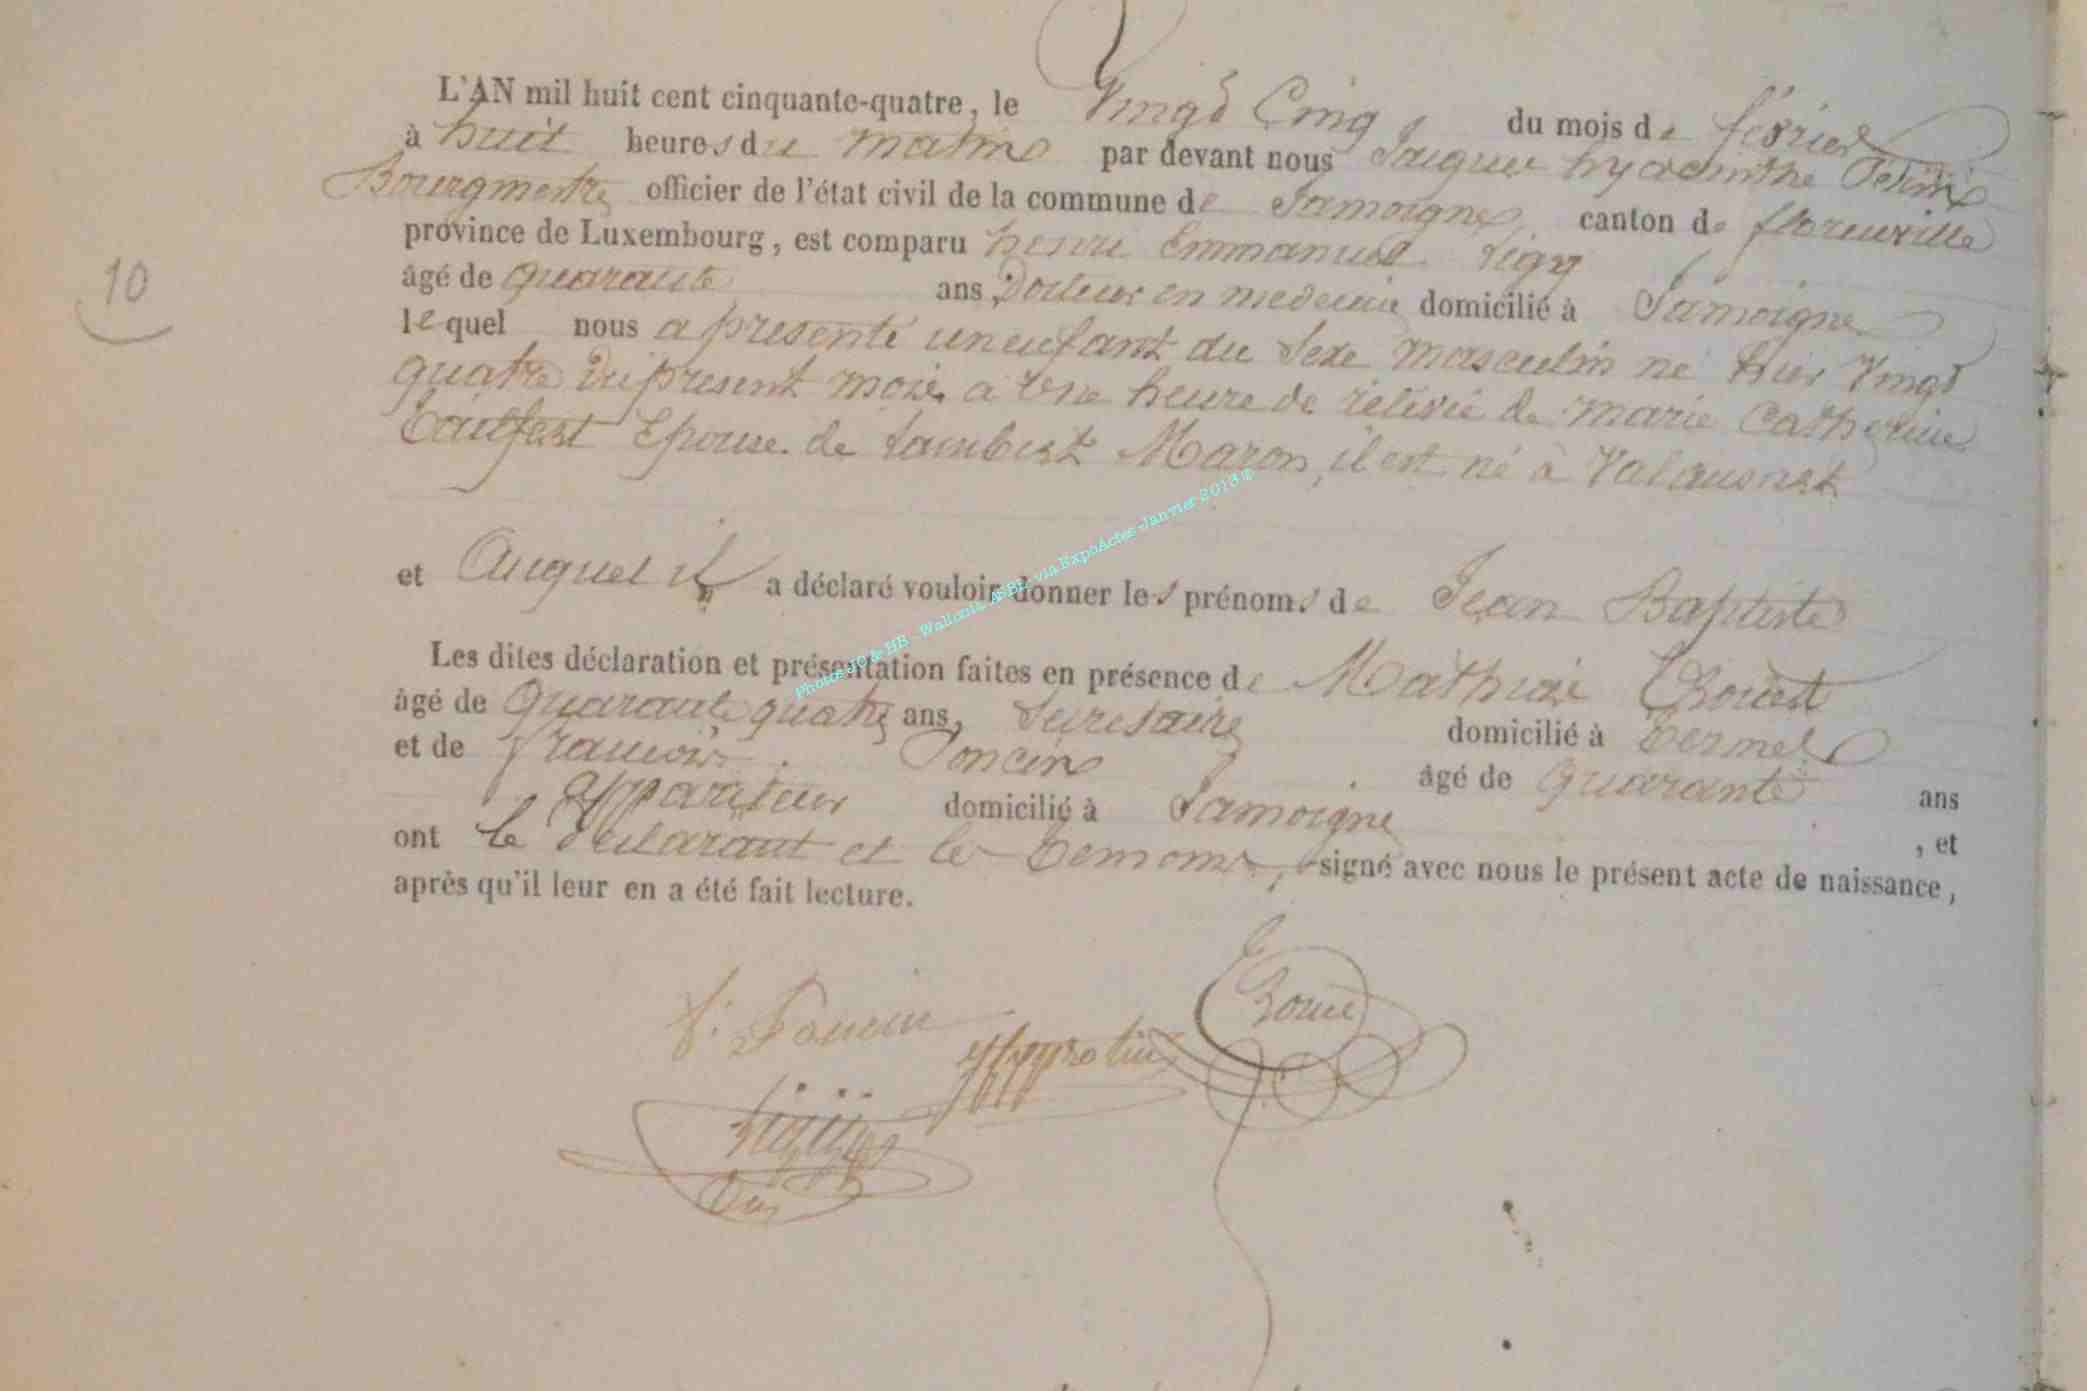 L'AN mil huit cent cinquante-quatre, le Vingt Cinq du mois de février
à huit heures du matin par devant nous Jaques hyacinthe
Bourgmestre officier de l'état civil de la commune de Jamoigne canton de florenville
province de Luxembourg, est comparu henri Emmanuel Sigy
10
âgé de quarante ans, Docteur en medecine domicilié à Jamoigne
lequel nous a presenté un enfant du Sexe masculin né hier Vingt
quatre du present mois a Une heure de rélévée de marie Catherine
Epouse de Lambert Maron, il est né à Valansart
et Auquel il a déclaré vouloir donner les prénoms de Jean Baptiste
Les dites déclaration et présentation faites en présence de Mathias
âgé de Quarante quatre ans, Secretaire domicilié à Termes
et de francois Poncin âgé de Quarante ans
appariteur domicilié à Jamoigne , et
ont le declarant et les temoins, signé avec nous le présent acte de naissance,
après qu'il leur en a été fait lecture.
f. Poncin
Photos JC & HB - Wallonia ASBL via ExpoActes - Janvier 2018 ©